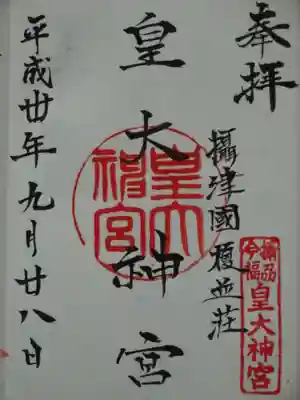 奉拝
攝津國榎並荘
皇大神宮
平成廿年九月廿八日
皇大
神宮
攝州
今福
皇大神宮